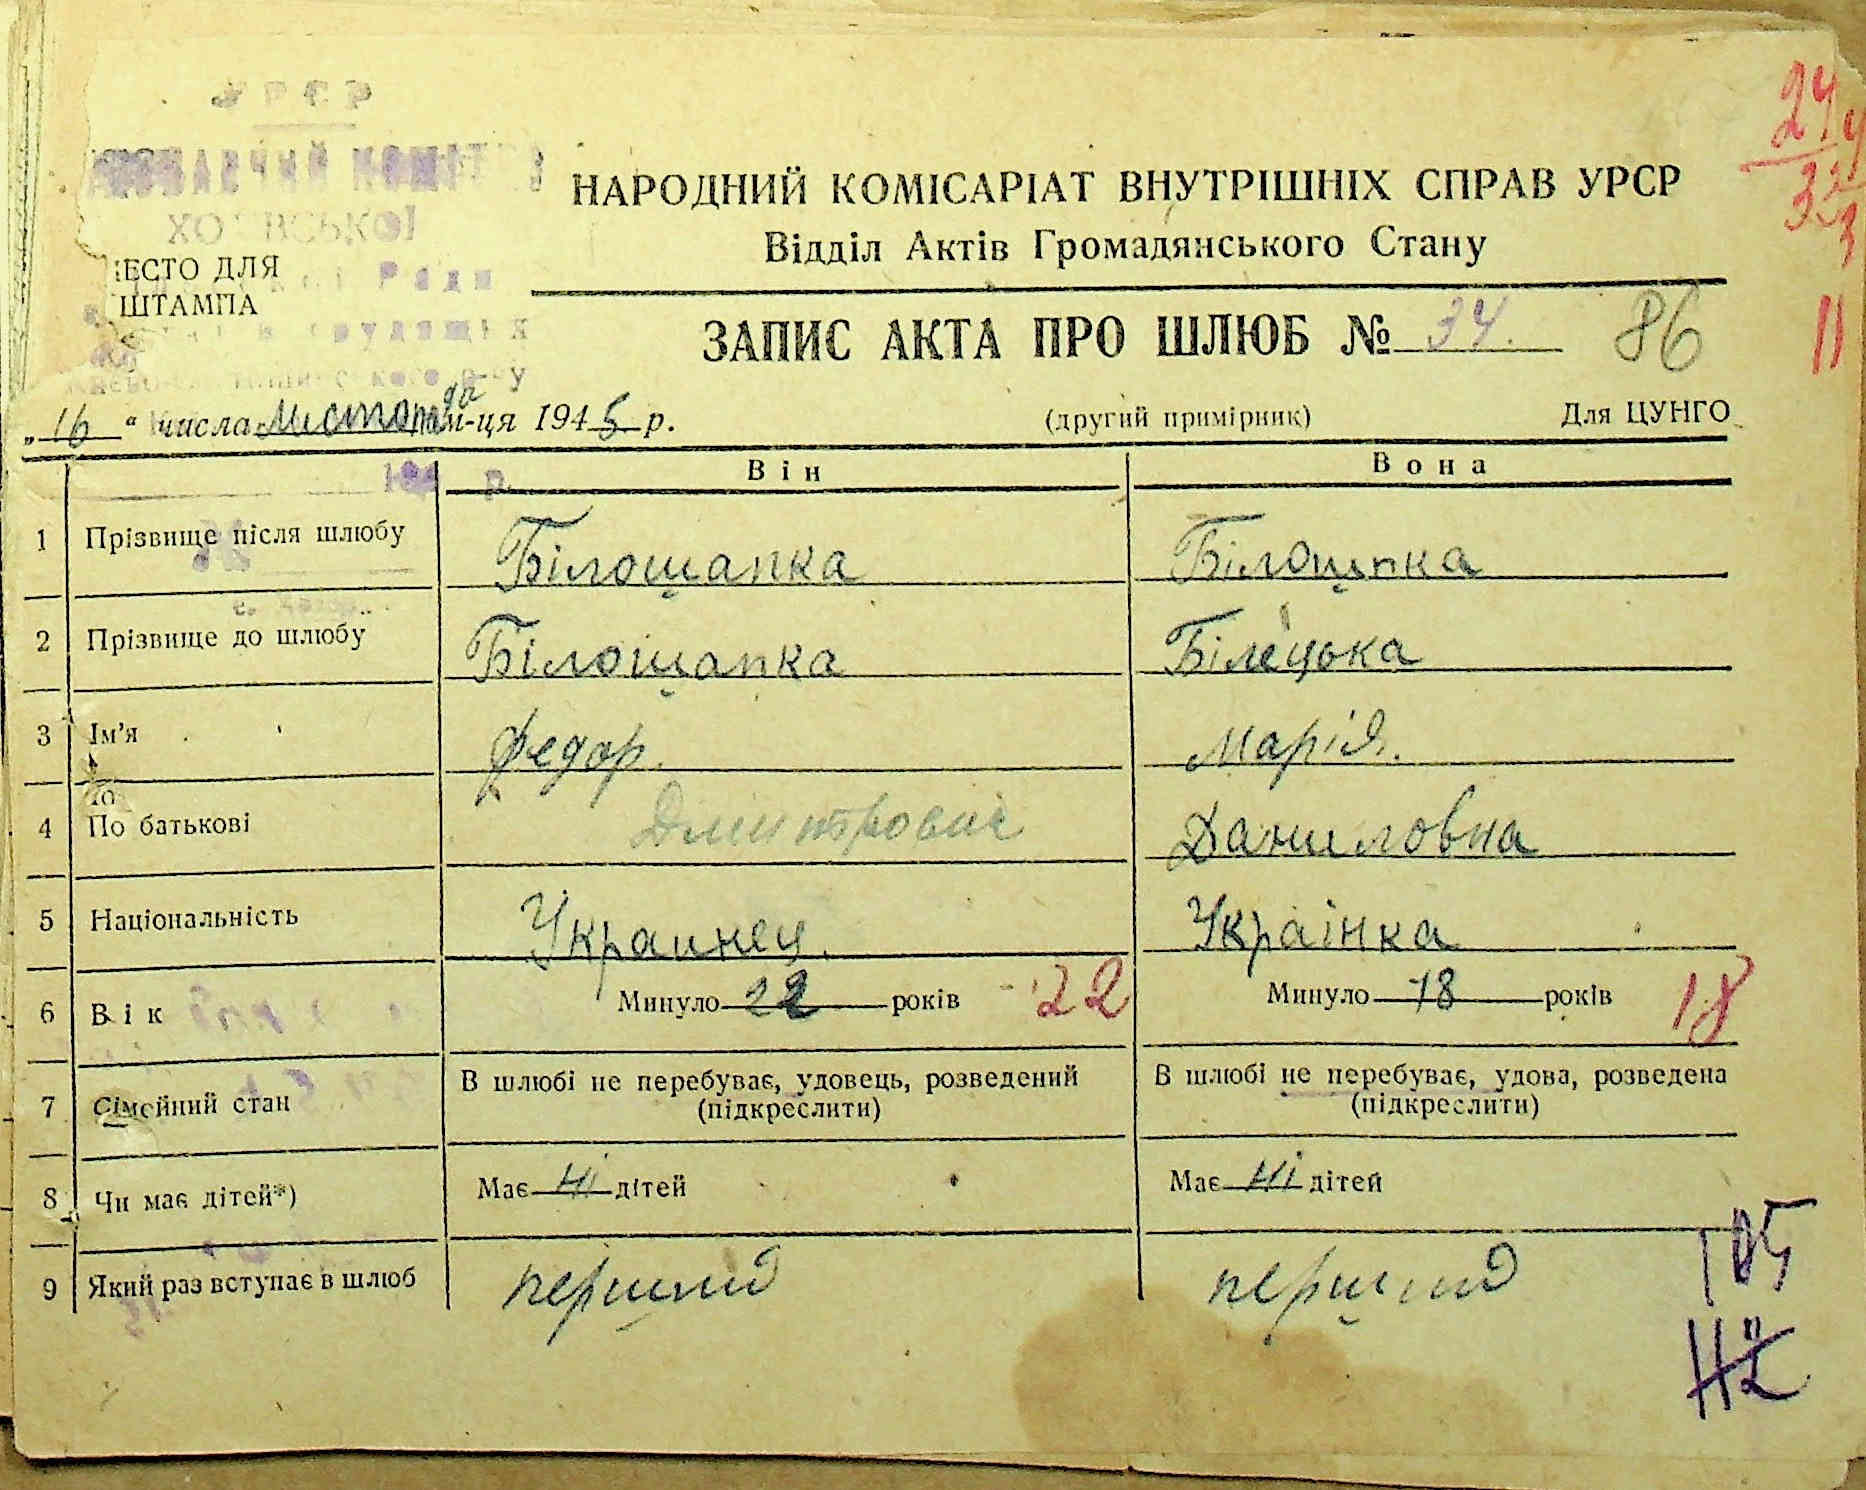 УРСР
ХО ІВСЬКОЇ
НАРОДНИЙ КОМІСАРІАТ ВНУТРІШНІХ СПРАВ УРСР
Відділ Актів Громадянського Стану
ІЕСТО ДЛЯ
ШТАМПА
Ради
ЗАПИС АКТА ПРО ШЛЮБ № 34. 86
„16“ числа листопада м-ця 1945 р.
(другий примірник) Для ЦУНГО
Він Вона
1 Прізвище після шлюбу Білошапка Білошпка
2 Прізвище до шлюбу Білошапка Білецька
3 Ім'я Федор. Марія.
4 По батькові Дмитрович Даниловна
5 Національність Украинец. Украінка
6 Вік Минуло 22 років 22 Минуло 18 років 18
7 Сімейний стан В шлюбі не перебуває, удовець, розведений (підкреслити) В шлюбі не перебуває, удова, розведена (підкреслити)
8 Чи має дітей*) Має ні дітей Має ні дітей
9 Який раз вступає в шлюб перший перший
24
33
11
105